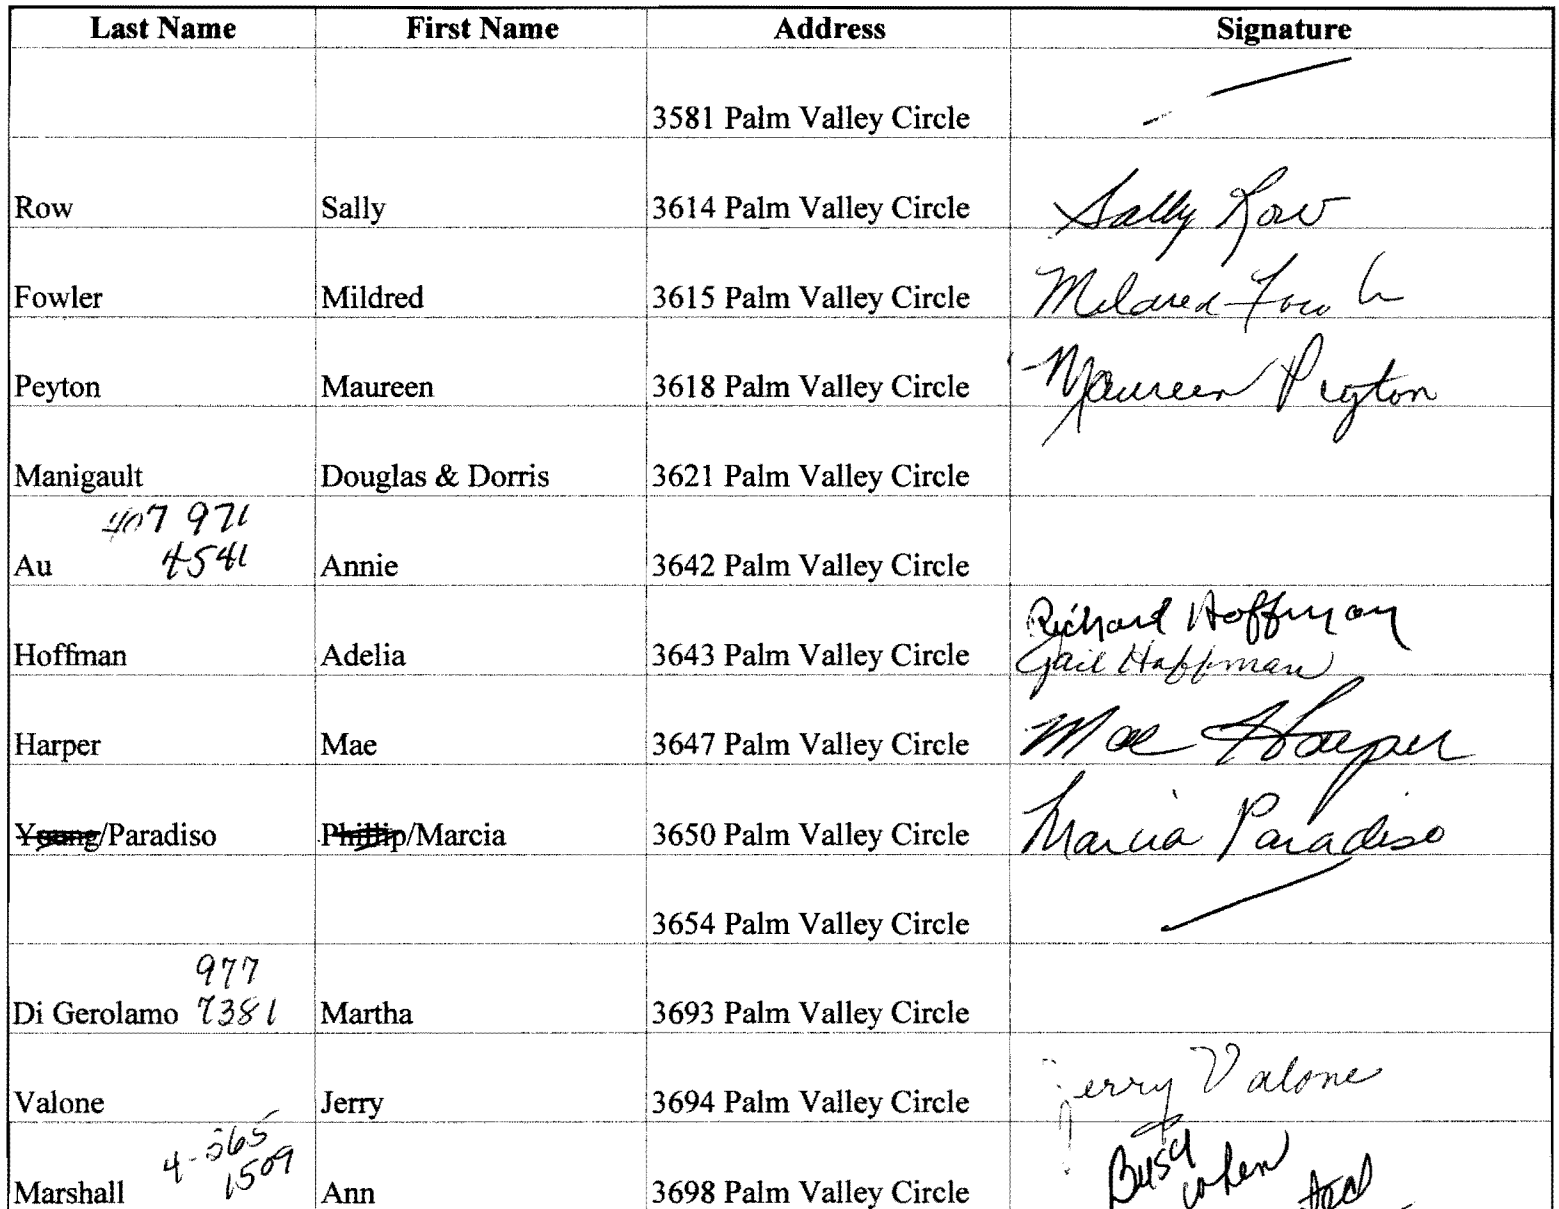 Last Name First Name Address Signature
3581 Palm Valley Circle
Row Sally 3614 Palm Valley Circle Sally Row
Fowler Mildred 3615 Palm Valley Circle Mildred Fowler
Peyton Maureen 3618 Palm Valley Circle Maureen Peyton
Manigault Douglas & Dorris 3621 Palm Valley Circle
407 971
4541
Au Annie 3642 Palm Valley Circle
Richard Hoffman
Hoffman Adelia 3643 Palm Valley Circle Gail Hoffman
Harper Mae 3647 Palm Valley Circle Mae Harper
Young/Paradiso Phillip/Marcia 3650 Palm Valley Circle Marcia Paradiso
3654 Palm Valley Circle
977
Di Gerolamo 7381 Martha 3693 Palm Valley Circle
Valone Jerry 3694 Palm Valley Circle Jerry Valone
4-565
1509
Marshall Ann 3698 Palm Valley Circle Busy when